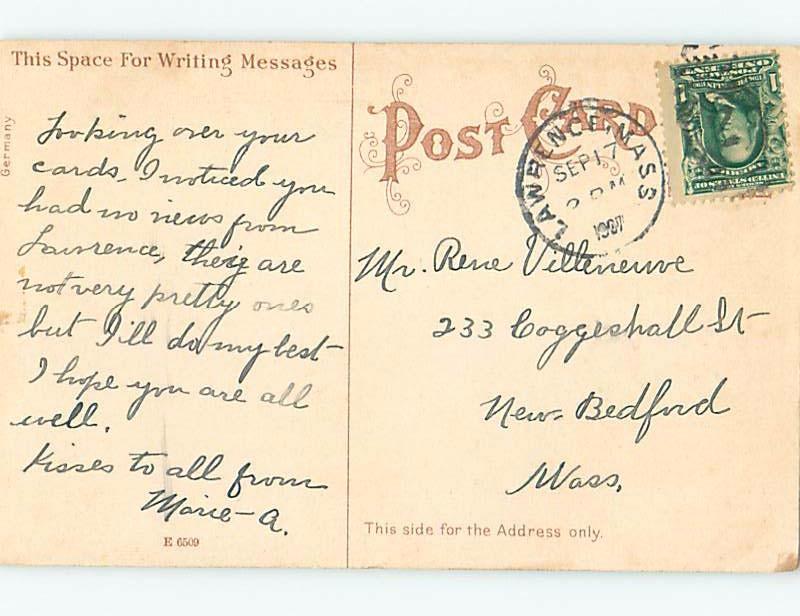 This Space For Writing Messages
Germany
Looking over your
cards, I noticed you
had no views from
Lawrence, they are
not very pretty ones
but I'll do my best
I hope you are all
well.
Kisses to all from
Marie-A.
E 6509
POST CARD
LAWRENCE, MASS
SEP 17
PM
1907
Mr. Rene Villeneuve
233 Coggeshall St
New-Bedford
Mass.
This side for the Address only.